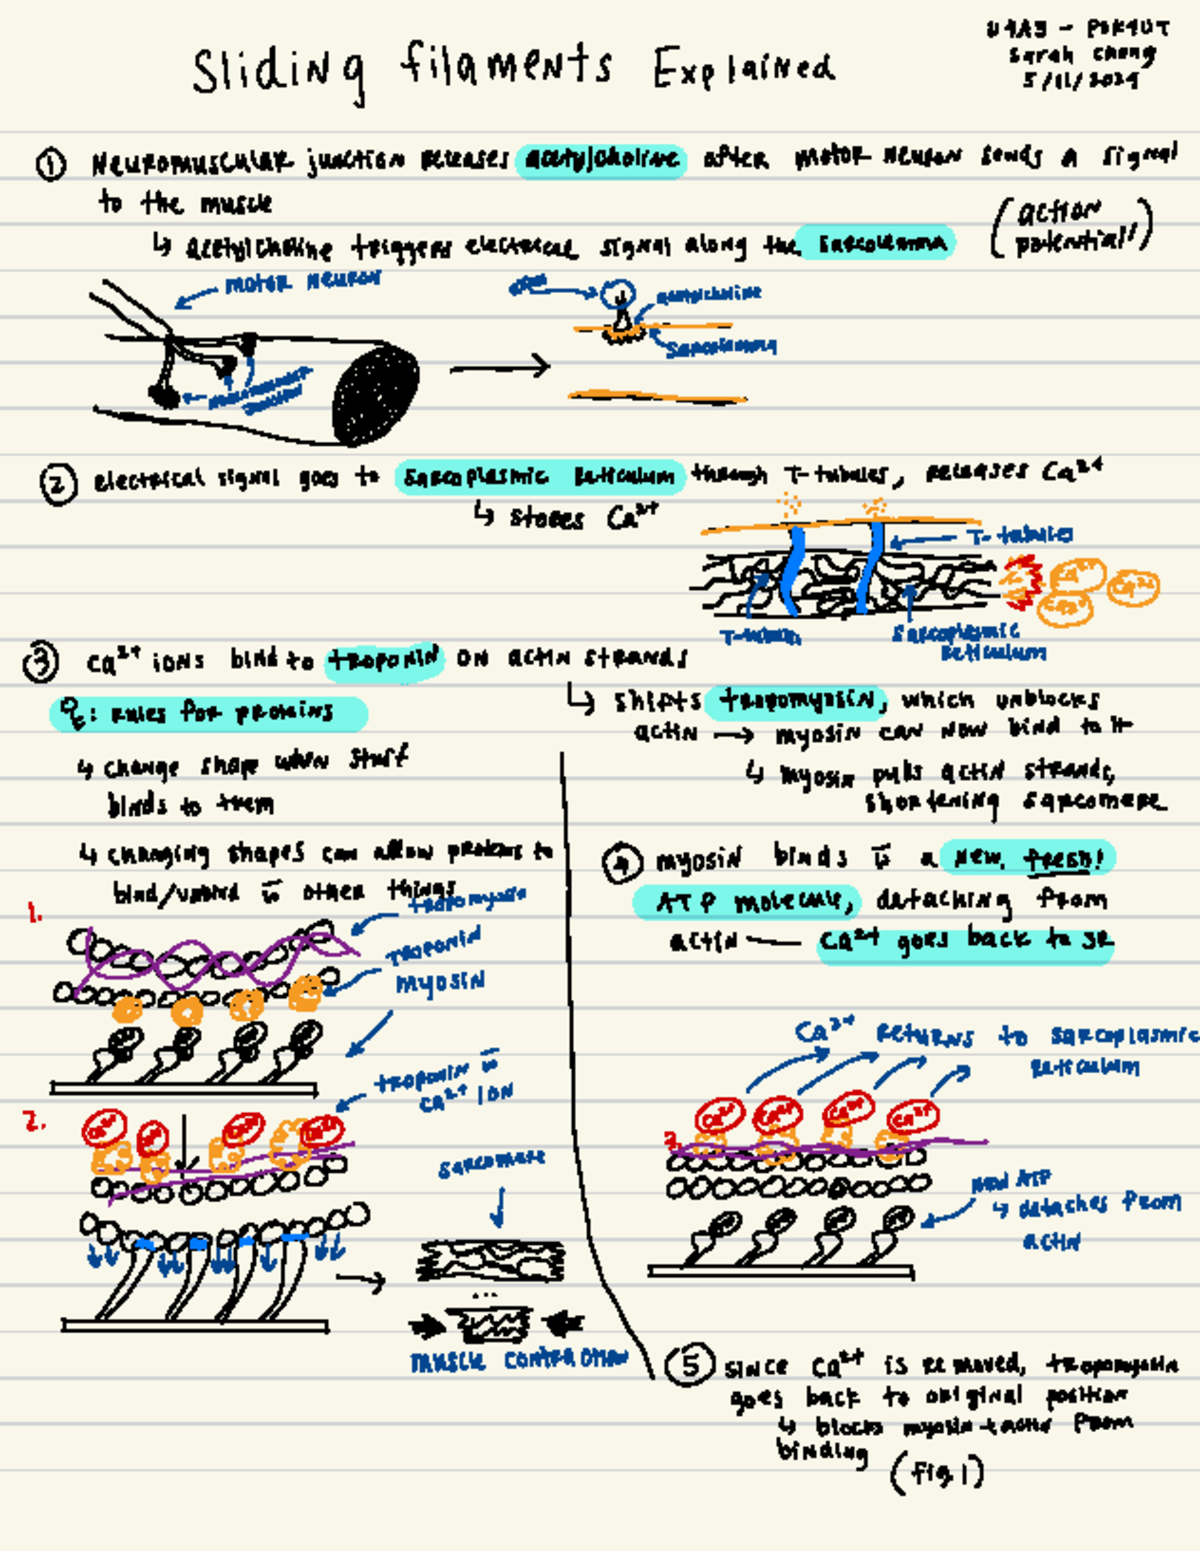 Sliding filaments Explained
Sarah Chang
5/11/2024
① Neuromuscular junction releases acetylcholine after motor neuron sends a signal
to the muscle
↳ acetylcholine triggers electrical signal along the sarcolemma (action potential)
motor neuron
acetylcholine
neuromuscular junction
② electrical signal goes to sarcoplasmic reticulum through T-tubules, releases Ca²⁺
↳ stores Ca²⁺
T-tubules
Ca²⁺
Ca²⁺
Ca²⁺
sarcoplasmic
reticulum
③ Ca²⁺ ions bind to troponin on actin strands
↳ shifts tropomyosin, which unblocks
actin → myosin can now bind to it
↳ myosin pulls actin strands,
shortening sarcomere
: rules for proteins
↳ change shape when stuff
binds to them
↳ changing shapes can allow proteins to
bind/unbind c̄ other things
1.
tropomyosin
troponin
myosin
2.
troponin c̄
Ca²⁺ ion
Ca²⁺
Ca²⁺
sarcomere
...
muscle contraction
④ myosin binds c̄ a new, fresh!
ATP molecule, detaching from
actin — Ca²⁺ goes back to SR
Ca²⁺ returns to sarcoplasmic
reticulum
Ca²⁺
Ca²⁺
Ca²⁺
Ca²⁺
3.
new ATP
↳ detaches from
actin
⑤ since Ca²⁺ is removed, tropomyosin
goes back to original position
↳ blocks myosin + actin from
binding
(fig. 1)